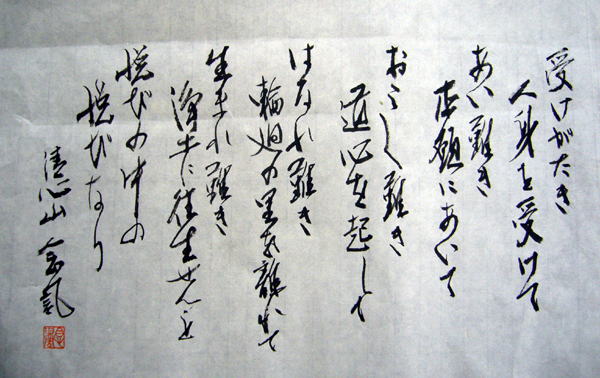 受けがたき
人身を受けて
あい難き
本願にあいて
おこし難き
道心を起して
はなれ難き
輪廻の里を離れて
生まれ難き
浄土に往生せんこと
悦びの中の
悦びなり
清心山